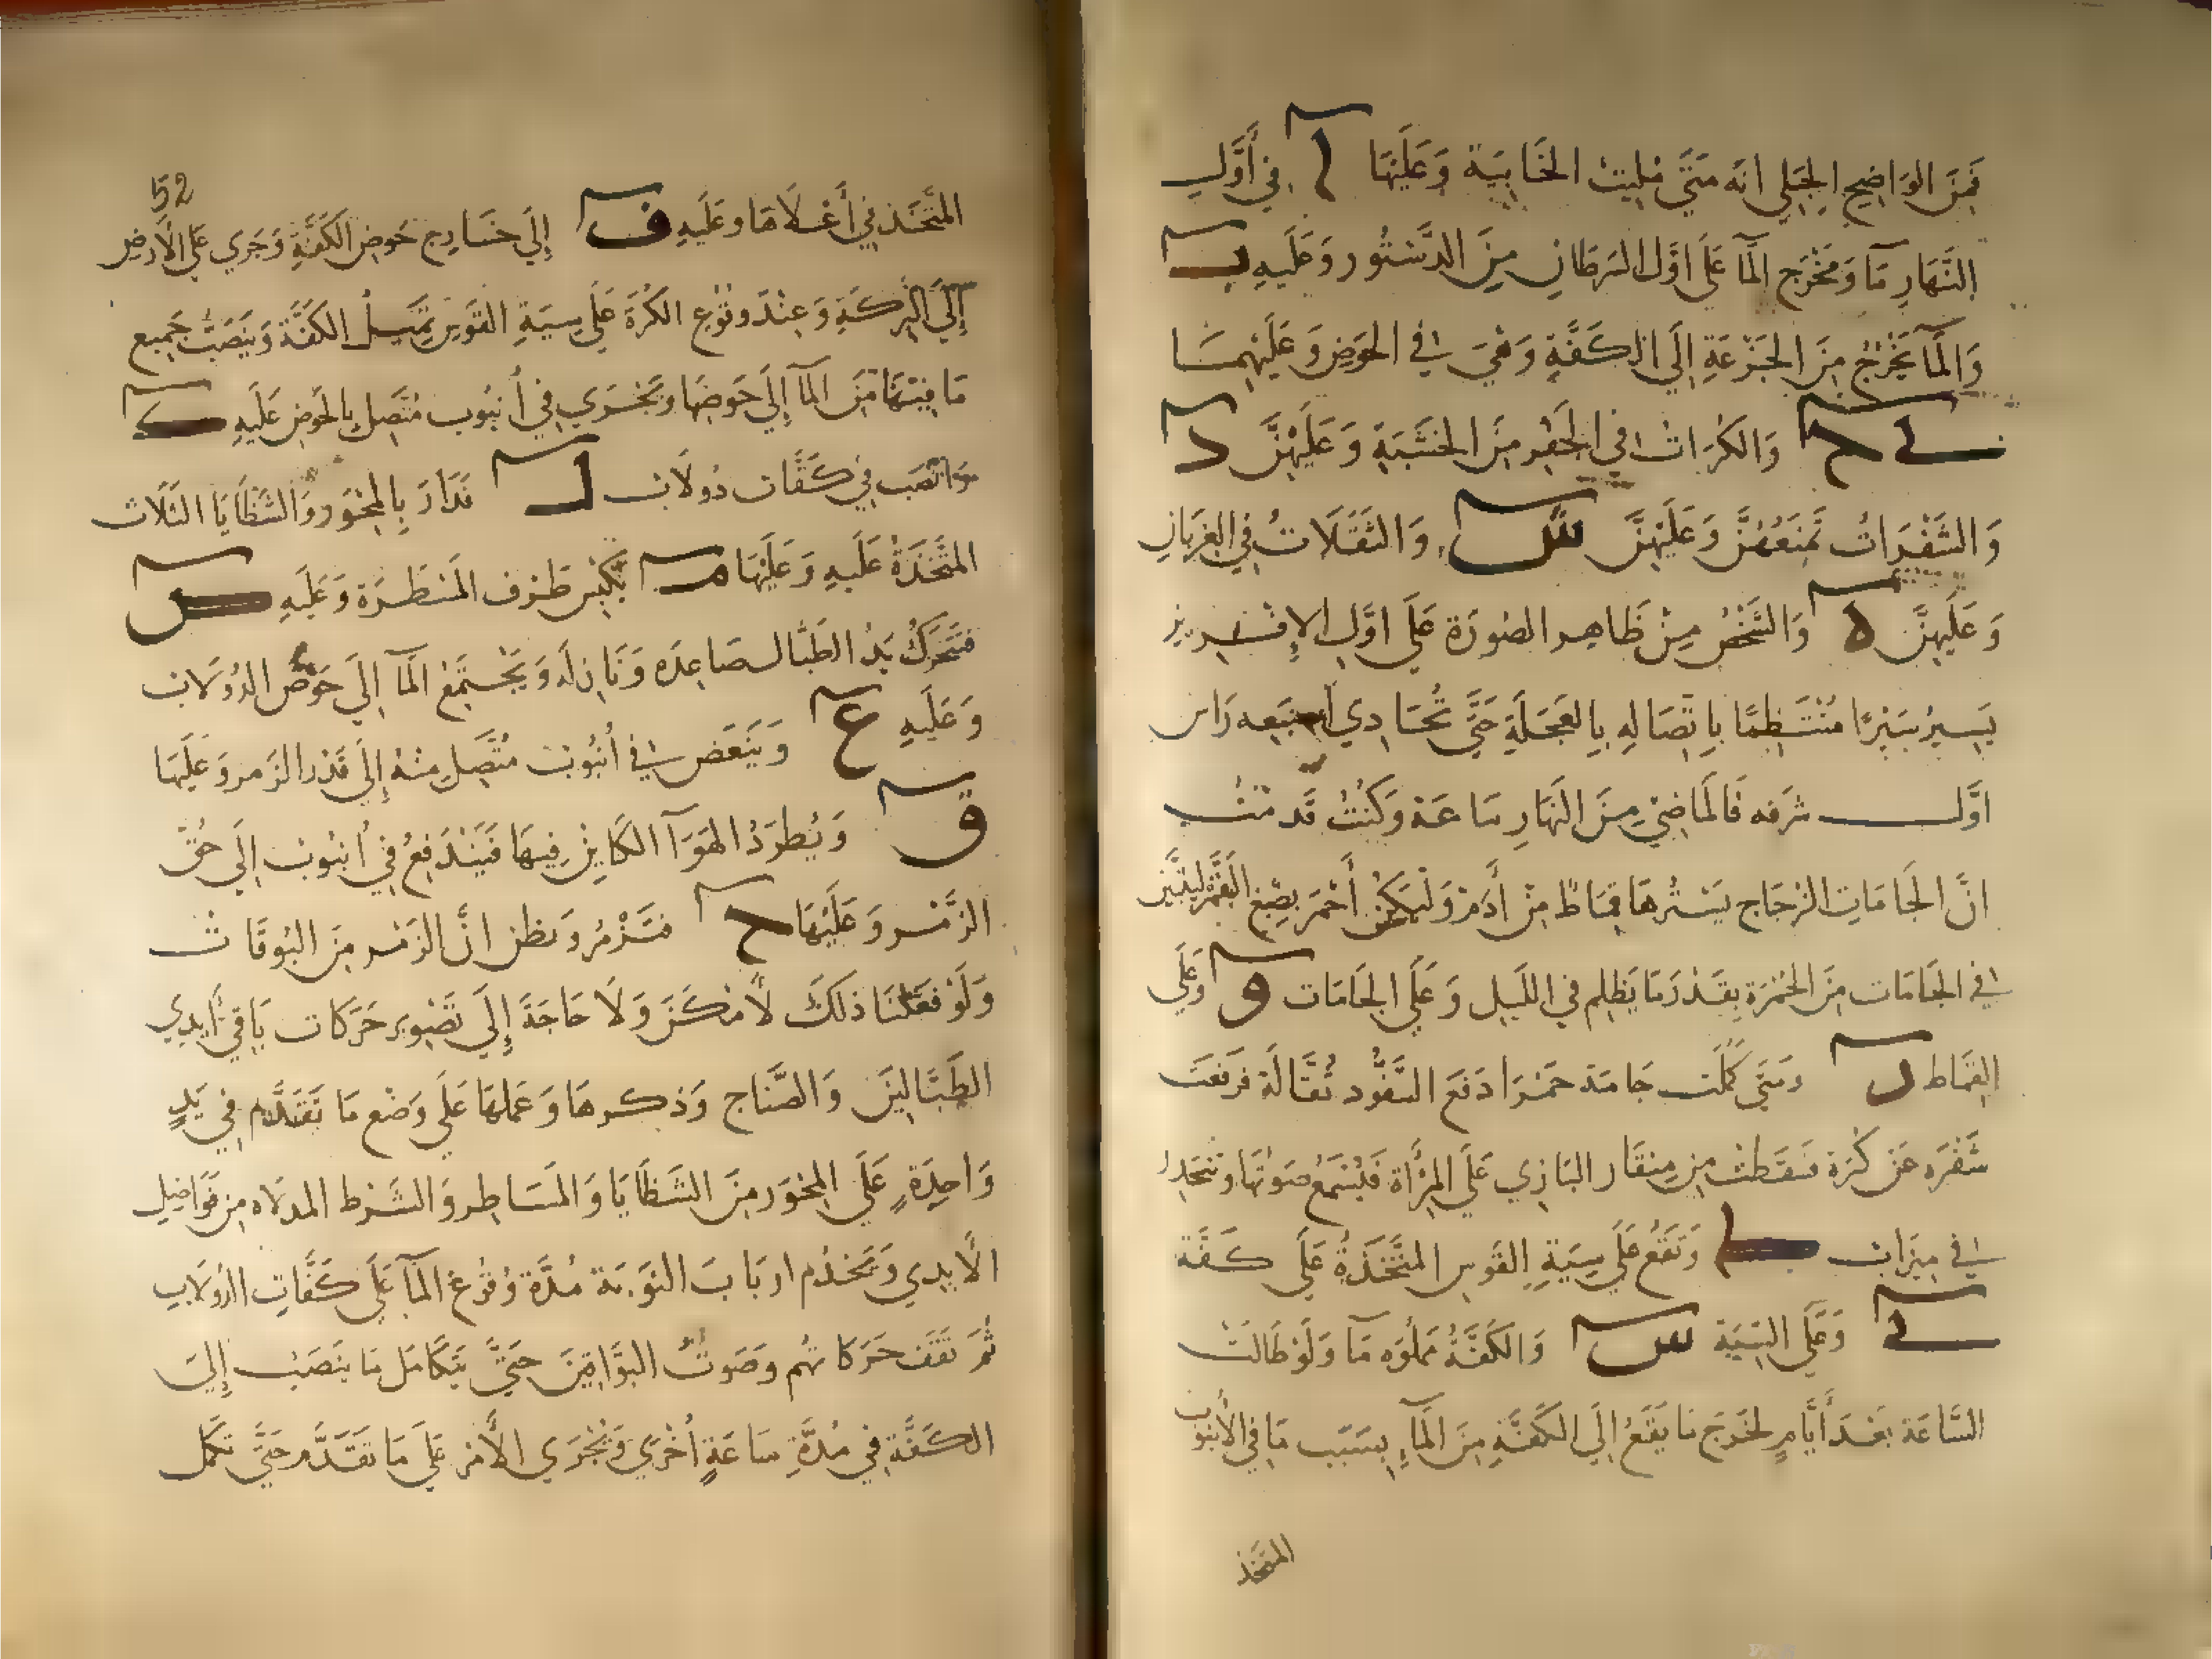 فَمِنَ الوَاضِحِ الجَلِي انّه مَتَى مُلِيَت الخَابِيَة وَعَلَيْهَا ا فِي أَوَّلِ
النَّهَارِ مَاء وَمَخْرَج المَآ عَلَى اوَّل السَرَطَانِ مِنَ الدَّسْتُور وَعَلَيهِ ب
وَالمَآ يَخْرُجُ مِنَ الجَزْعَةِ إِلَى الكَفَّةِ وَهْيَ فِي الحَوضِ وَعَلَيْهِمَا
ى ح وَالكُرَاتُ فِي الحُفَر مِنَ الخَشَبَةِ وَعَلَيْهِنَّ د
وَالشَّفْرَاتُ تَمْنَعُهُنَّ وَعَلَيْهِنَّ ش وَالثَقَّلَاتُ فِي الغِرْبَانِ
وَعَلَيهِنَّ ه وَالشَّخْصُ مِنْ ظَاهِرِ الصُورَة عَلَى اوَّل الإفريز
يَسِيرُ سَيْرًا مُنْتَظِمًا بِاتِّصَالِهِ بِالعَجَلَةِ حَتَّى تُحَادِي اصبَعه رَاس
اوَّل شرَفه فَالمَاضِي مِنَ النَهَارِ سَاعَة وَكُنْتُ قَد قُلْتُ
انَّ الجَامَاتِ الزُجَاج يَسْتُرهَا قِمَاطٌ مِن أَدَم وَلْيَكُنْ أَحْمَر بِصِبْغِ البَقَّمِ ليتبيّن
فِي الجَامَات مِنَ الحُمْرَة بِقَدْرِ مَا يُظلِم فِي اللَيل وَعَلَى الجَامَات و وَعَلَى
القِمَاط ر وَمَتَى كَمُلَت جَامَة حَمْرَا دَفَعَ السَّفُّود ثَقَّالَة فَرَفَعَت
شَفْرَه عَن كُرَة فَسَقَطَتْ مِن مِنقَار البَازِي عَلَى المِرْأَة فَيُسْمَعُ صَوْتُهَا وَتَنْحَدِرُ
فِي مِيزَاب ط وَتَقَعُ عَلَى سِيَةِ القَوسِ المُتَّخَذَةُ عَلَى كَفَّة
ى وَعَلَى السِّيَة س وَالكَفَّةُ مَمْلُوَه مَآ وَلَوْ طَالَتْ
السَّاعَة بَعْدَ أَيَّامٍ لَخَرَجَ مَا يَقَعُ إِلَى الكَفَّةِ مِنَ المَآءِ بِسَبَب مَا فِي الأُنبُوب
المتَّخذ
52
المُتَّخَذ فِي أَعْلَاهَا وَعَلَيهِ ف إِلَى خَارِج حَوضِ الكَفَّةِ وَجَرَى عَلَى الأَرضِ
إِلَى البِركَةِ وَعِنْدَ وُقُوعِ الكُرَة عَلَى سِيَةِ القَوسِ تَمِيلُ الكَفَّة وَيَنصَبُّ جَمِيع
مَا فِيهَا مِنَ المَآ إِلَى حَوضِهَا وَيَجْرِي فِي أُنبُوب مُتَّصِلٍ بِالحَوضِ عَلَيهِ ك
وَيَنصَب فِي كَفَّات دُولَاب ل فَدَارَ بِالمِحْوَر وَالشَّظَايَا الثَلَاث
المُتَّخَذَةُ عَلَيهِ وَعَلَيْهَا م تَكْبِسُ طَرَف المَسْطَرَة وَعَلَيهِ ص
فَتَتَحَرَّكُ يَدُ الطَبَّال صَاعِدَه وَنَازِلَه وَيَجْتَمِعُ المَآ إِلَى حَوْض الدُولَاب
وَعَلَيهِ ع وَيَنغض فِي أُنبُوب مُتَّصِلٍ مِنْهُ إِلَى قِدْر الزَمر وَعَلَيهَا
ق وَيُطرَدُ الهَوَآ الكَايِن فِيهَا فَيَنْدَفِعُ فِي أُنبُوب إِلَى حُقّ
الزَّمْر وَعَلَيْهَا ح فَتَزْمُر وَيظن انَّ الزَمر مِنَ البُوقَات
وَلَوْ فَعَلْنَا ذَلِكَ لأَمْكَنَ وَلَا حَاجَةَ إِلَى تَصْوِير حَرَكَات بَاقِي أَيدِي
الطَبَّالِينَ وَالصَّنَّاج وَذِكرهَا وَعَمَلهَا عَلَى وَضْع مَا تَقَدَّم فِي يَدٍ
وَاحِدَةٍ عَلَى المِحْوَر مِنَ الشَظَايَا وَالمَسَاطِر وَالشَرْط المدلاه مِن فَوَاضِلِ
الأَيدِي وَتَخْدُم اربَابَ النَوبَة مُدَّة وُقُوع المَآ عَلَى كَفَّاتِ الدُولَابِ
ثُمَّ تَقِفُ حَرَكَاتُهُم وَصَوتُ البَوَّاقِينَ حَتَّى يَتَكَامَل مَا يَنصَبُ إِلَى
الكَفَّة فِي مُدَّةِ سَاعَةٍ أُخْرَى وَيَجْرِي الأَمْر عَلَى مَا تَقَدَّم حَتَّى تَكمل